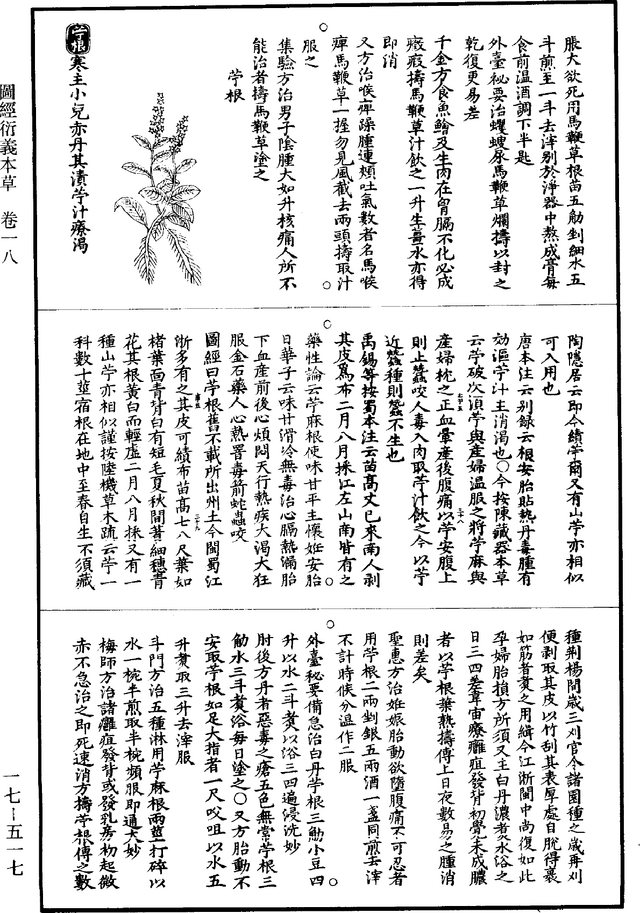 脹大欲死用馬鞭草根苗五觔剉細水五
斗煎至一斗去滓別於淨器中熬成膏每
食前温酒調下半匙
外臺秘要治蠼螋尿馬鞭草爛擣以封之
乾復更易差
千金方食魚鱠及生肉在胷膈不化必成
癥瘕擣馬鞭草汁飲之一升生薑水亦得
即消
又方治喉痹躁腫連頰吐氣數者名馬喉
痺馬鞭草一握勿見風截去兩頭擣取汁
服之
集驗方治男子陰腫大如升核痛人所不
能治者擣馬鞭草塗之
苧根
苧根寒主小兒赤丹其漬苧汁療渴
陶隱居云即今績苧爾又有山苧亦相似
可入用也
唐本注云别録云根安胎貼熱丹毒腫有
効漚苧汁主消渴也〇今按陳藏器本草
云苧破血漬苧與產婦温服之將苧麻與
產婦枕之止血暈產後腹痛以苧安腹上
則止蠶咬人毒入肉取苧汁飲之今以苧
近蠶種則蠶不生也
禹錫等按蜀本注云苗高丈已來南人剥
其皮爲布二月八月採江左山南皆有之
藥性論云苧麻根使味甘平主懷姙安胎
日華子云味甘滑冷無毒治心膈熱漏胎
下血産前後心煩悶天行熱疾大渴大狂
服金石藥人心熱署毒箭蛇蟲咬
圖經曰苧根舊不載所出州土今閩蜀江
浙多有之其皮可績布苗高七八尺葉如
楮葉面青背白有短毛夏秋間著細穗青
花其根黄白而輕虛二月八月採又有一
種山苧亦相似謹按陸機草木疏云苧一
科數十莖宿根在地中至春自生不須藏
種荆楊間歲三刈官令諸園種之歲再刈
便剥取其皮以竹刮其表厚處自脫得裏
如筋者煑之用緝今江浙閩中尚復如此
孕婦胎損方所須又主白丹濃煑水浴之
日三四差韋宙療癰疽發背初覺未成膿
者以苧根葉熱擣傅上日夜數易之腫消
則差矣
聖惠方治妊娠胎動欲墮腹痛不可忍者
用苧根二兩剉銀五兩酒一盞同煎去滓
不計時候分温作二服
外臺秘要備急治白丹苧根三觔小豆四
升以水二斗煑以浴三四遍浸洗妙
肘後方丹者惡毒之瘡五色無常苧根三
觔水三斗煑浴每日塗之〇又方胎動不
安取苧根如足大指者一尺㕮咀以水五
升煑取三升去滓服
斗門方治五種淋用苧麻根兩莖打碎以
水一椀半煎取半椀頻服即通大妙
梅師方治諸癰疽發背或發乳房初起微
赤不急治之即死速消方擣苧根傅之數
圖經衍義本草 卷一八
一七—五一七